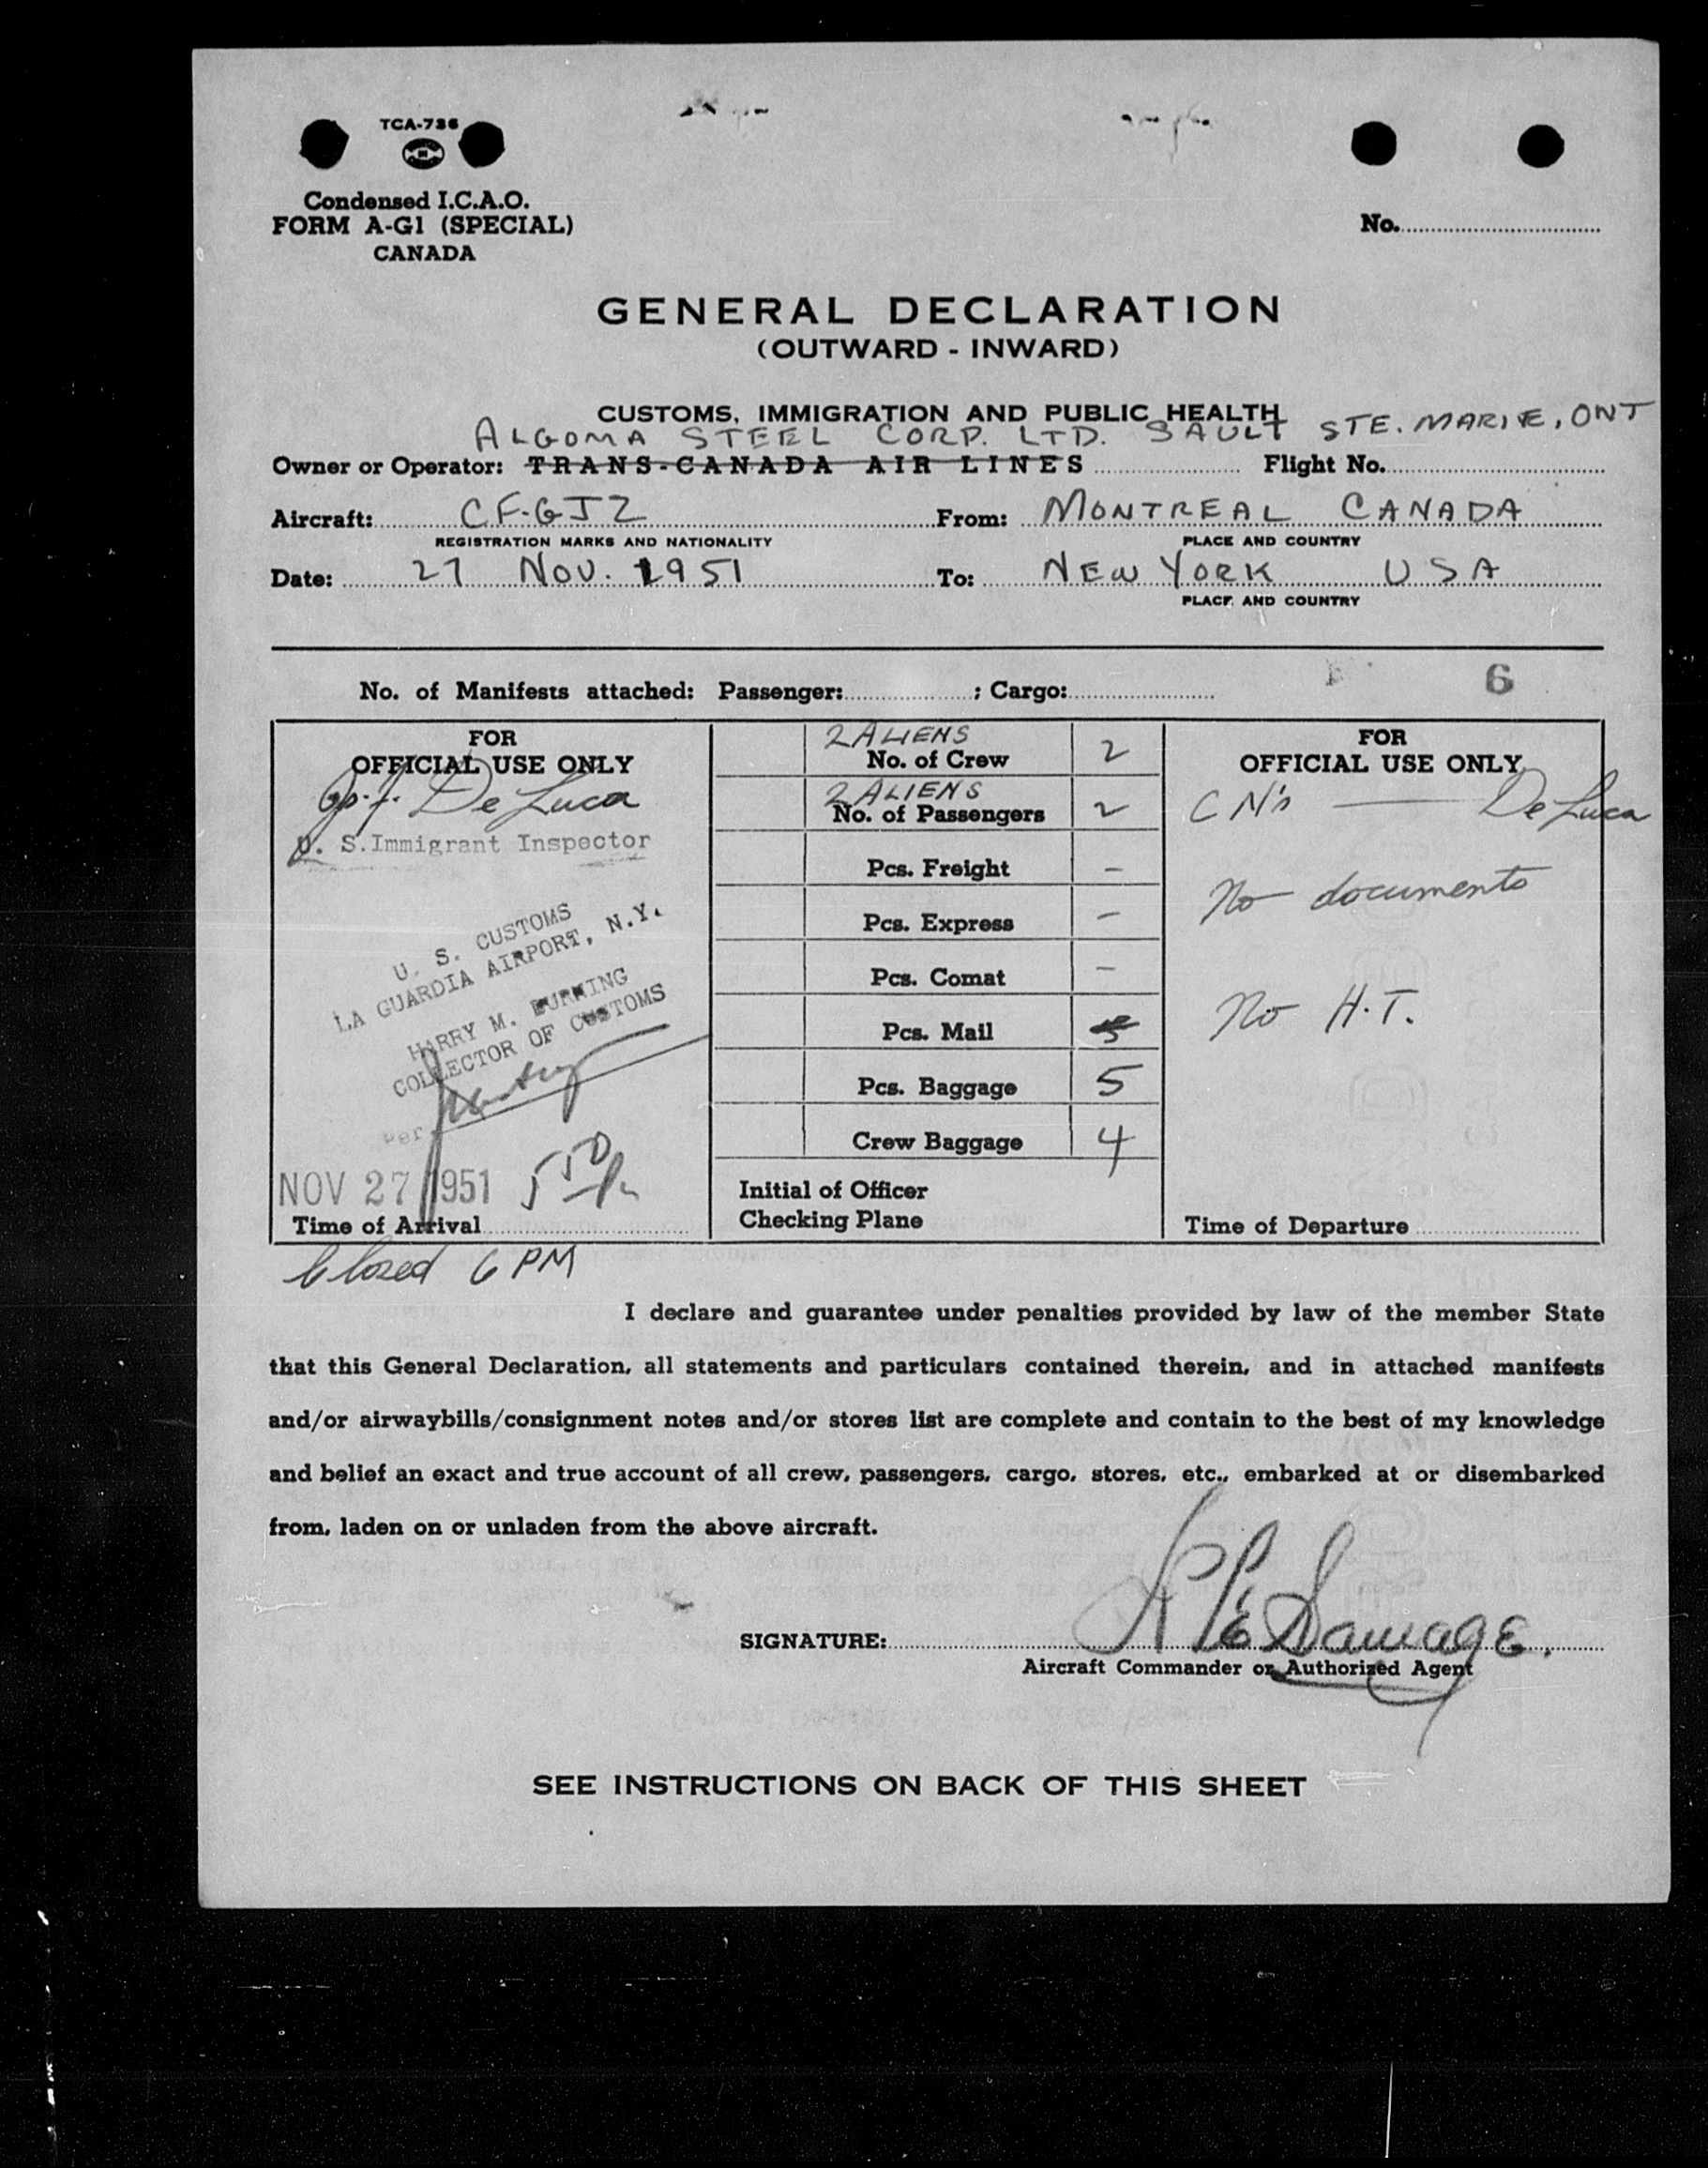 TCA-736
Condensed I.C.A.O.
FORM A-G1 (SPECIAL)
CANADA
No.
GENERAL DECLARATION
(OUTWARD - INWARD)
CUSTOMS, IMMIGRATION AND PUBLIC HEALTH
ALGOMA STEEL CORP. LTD. SAULT STE. MARIE, ONT
Owner or Operator: TRANS-CANADA AIR LINES Flight No.
Aircraft: CF-GJZ From: MONTREAL CANADA
REGISTRATION MARKS AND NATIONALITY PLACE AND COUNTRY
Date: 27 NOV. 1951 To: NEW YORK USA
PLACE AND COUNTRY
6
No. of Manifests attached: Passenger: ; Cargo:
FOR
OFFICIAL USE ONLY
De Luca
U. S. Immigrant Inspector
U. S. CUSTOMS
LA GUARDIA AIRPORT, N.Y.
HARRY M. DURNING
COLLECTOR OF CUSTOMS
Per
NOV 27 1951 550 p
Time of Arrival
2 ALIENS
No. of Crew 2
2 ALIENS
No. of Passengers 2
Pcs. Freight -
Pcs. Express -
Pcs. Comat -
Pcs. Mail
Pcs. Baggage 5
Crew Baggage 4
Initial of Officer
Checking Plane
FOR
OFFICIAL USE ONLY
CN's — De Luca
No documents
No H.T.
Time of Departure
Closed 6 PM
I declare and guarantee under penalties provided by law of the member State
that this General Declaration, all statements and particulars contained therein, and in attached manifests
and/or airwaybills/consignment notes and/or stores list are complete and contain to the best of my knowledge
and belief an exact and true account of all crew, passengers, cargo, stores, etc., embarked at or disembarked
from, laden on or unladen from the above aircraft.
SIGNATURE:
Aircraft Commander or Authorized Agent
SEE INSTRUCTIONS ON BACK OF THIS SHEET